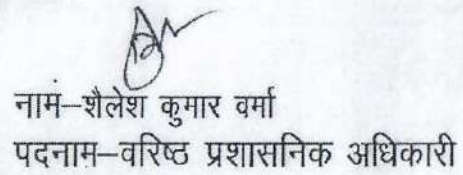 नाम–शैलेश कुमार वर्मा
पदनाम–वरिष्ठ प्रशासनिक अधिकारी